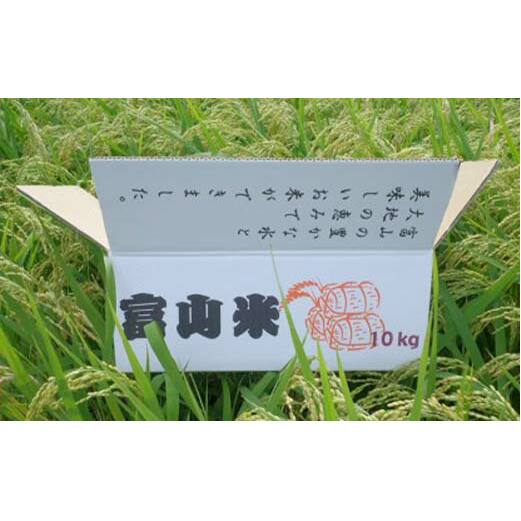 富山の豊かな水と
大地の恵みで
美味しいお米ができました。
富山米
10kg